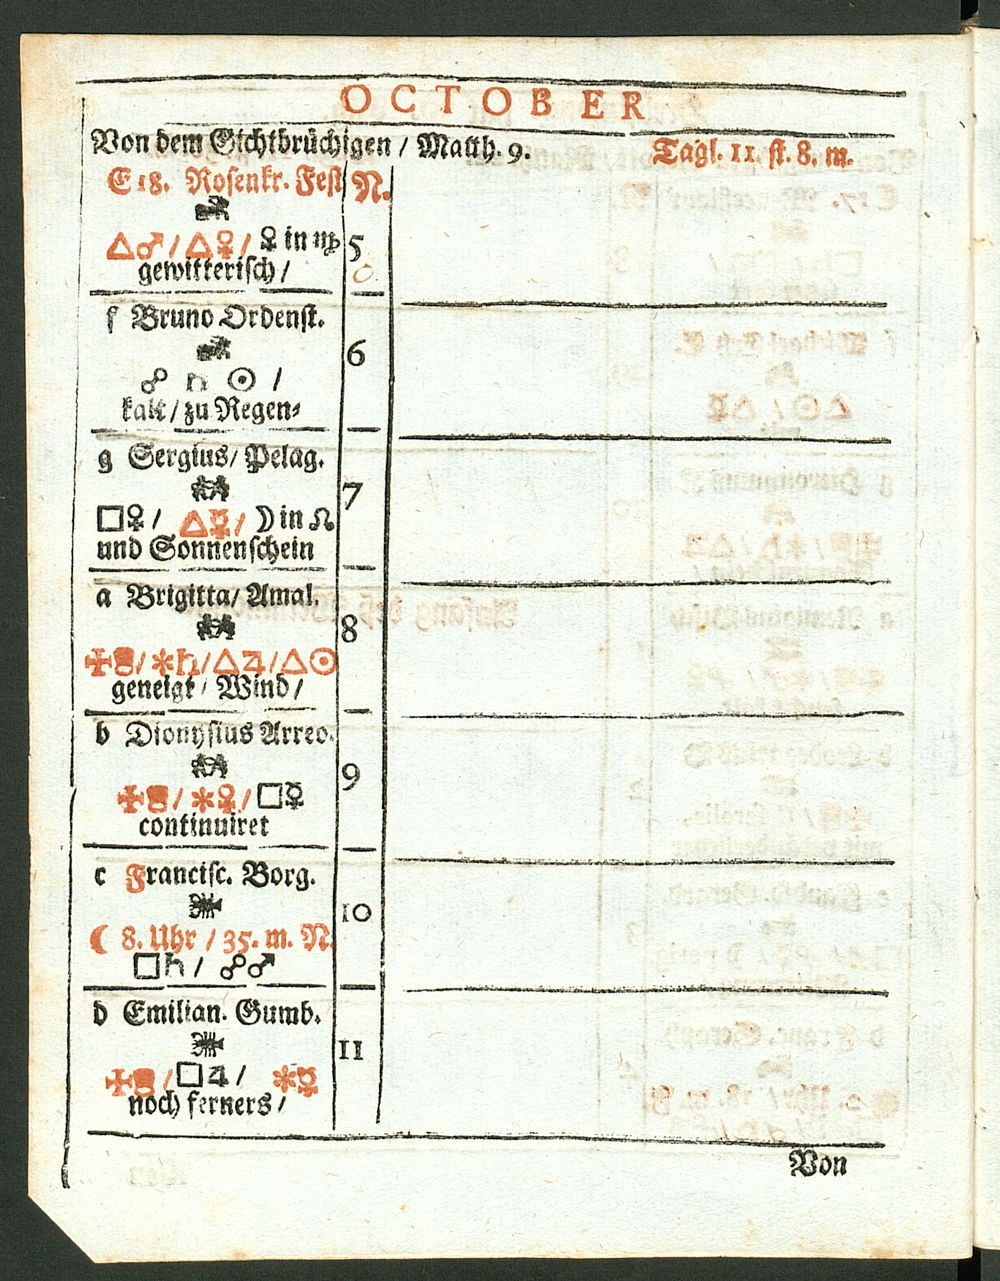 OCTOBER
Von dem Gichtbrüchigen / Matth. 9. Tagl. 11. st. 8. m.
E 18. Rosenkr. Fest N.
△♂ / △♀ / ♀ in ♍ 5
gewitterisch /
f Bruno Ordenst.
6
☍ ♄ ☉ /
kalt / zu Regen⸗
g Sergius / Pelag.
7
□♀ / △☿ / ☽ in ♌
und Sonnenschein
a Brigitta / Amal.
8
✠ / ✶♄ / △♃ / △☉
geneigt / Wind /
b Dionysius Arreo.
9
✠ / ✶♀ / □☿
continuiret
c Francisc. Borg.
10
☾ 8. Uhr / 35. m. N.
□♄ / ☍♂
d Emilian. Gumb.
11
✠ / □♃ / ✶☿
noch ferners /
Von